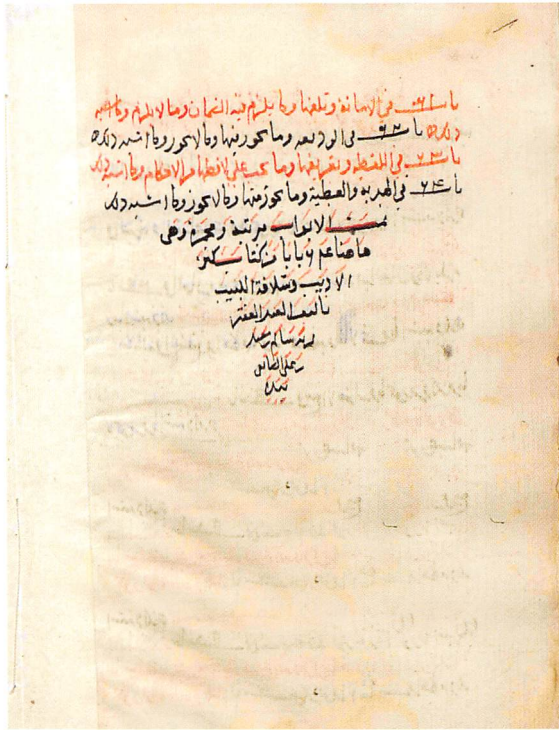 باب ٦١ في الامانة وتلفها وما يلزم فيه الضمان وما لا يلزم وما اشبه
ذلك باب ٦٢ في الوديعه وما يجوز فيها وما لا يجوز وما اشبه ذلك
باب ٦٣ في اللقطه وتعريفها وما يجب على لاقطها من الاحكام وما اشبه ذلك
باب ٦٤ في الهديه والعطية وما يجوز منها وما لا يجوز وما اشبه ذلك
تمت الابواب مرتبة وهي
هاهنا بابا من كتاب كنز
الاديب وسلافة اللبيب
تاليف العبد الفقير
سالم بن سعيد
بن علي الصائغي
بيده